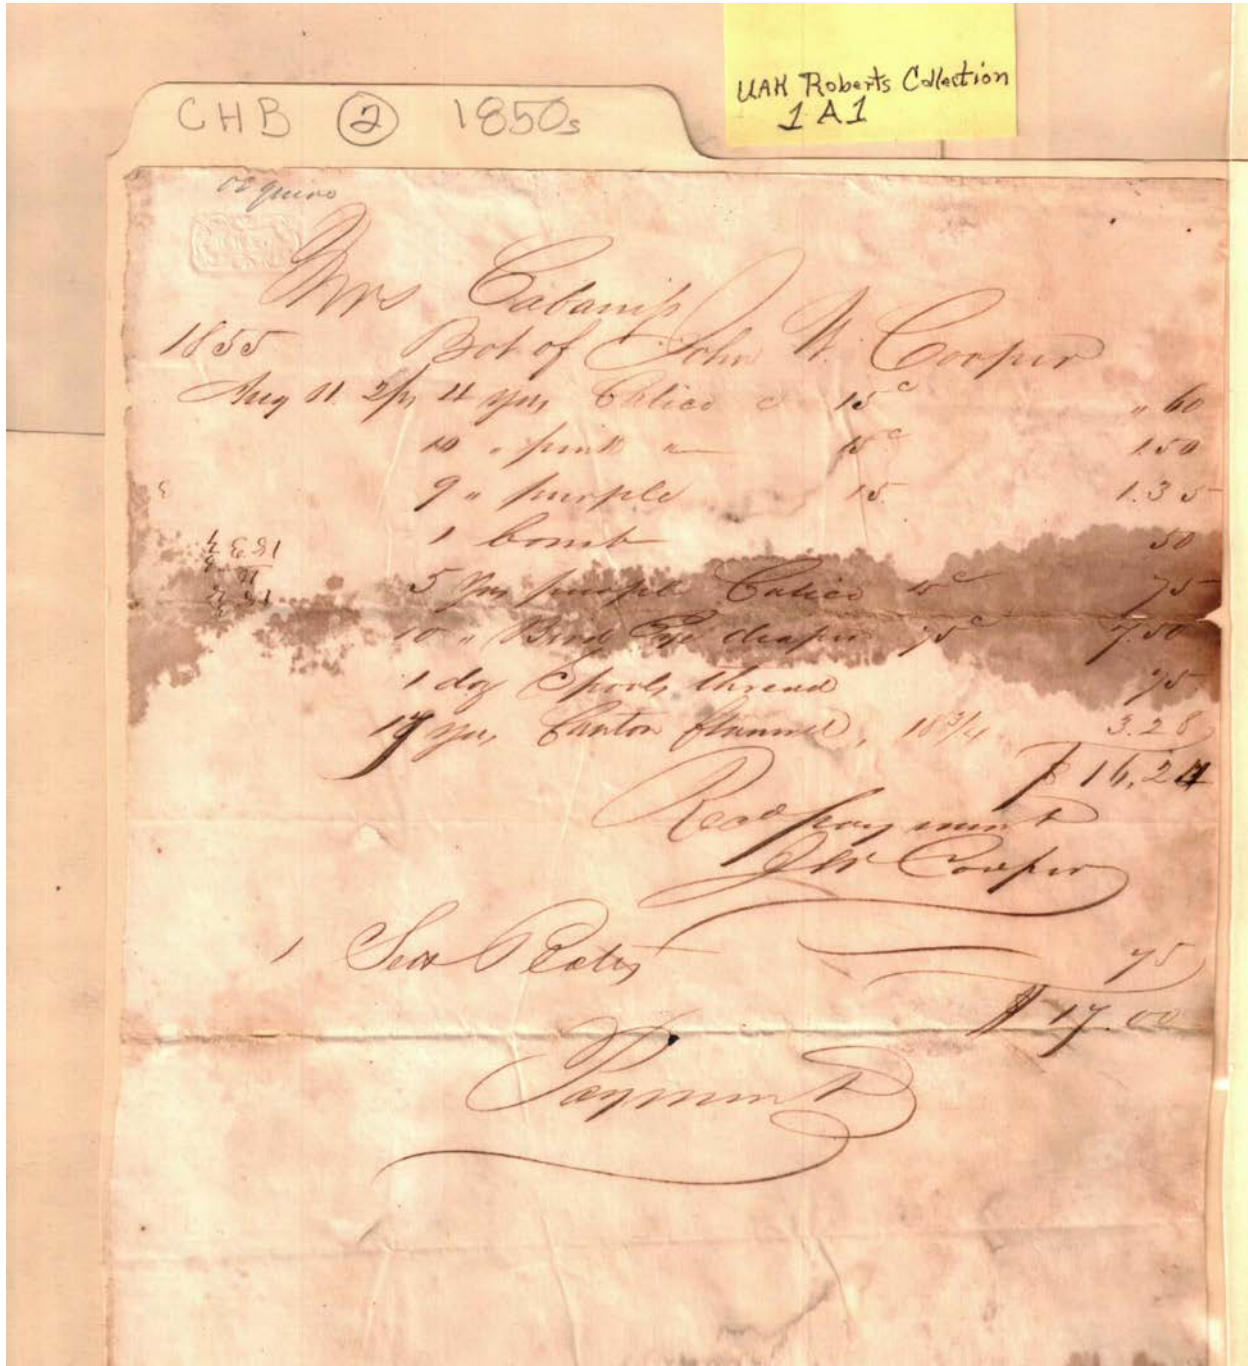 UAH Roberts Collection
1 A 1
CHB ② 1850s
Mrs Cabaniss
1855 Bot of John W. Cooper
Aug 11. 4 yds Calico c 15c " 60
10 " pink " 15c 1.50
9 " purple 15 1.35
1 Comb 50
5 yds purple Calico 15c 75
10 " Bird Eye diaper 75c 7.50
1 doz Spools thread 75
17 yds Canton flannel, 18 3/4 3.28
$ 16.24
Recd payment
JW Cooper
1 Sett Plates 75
$ 17.00
Payment